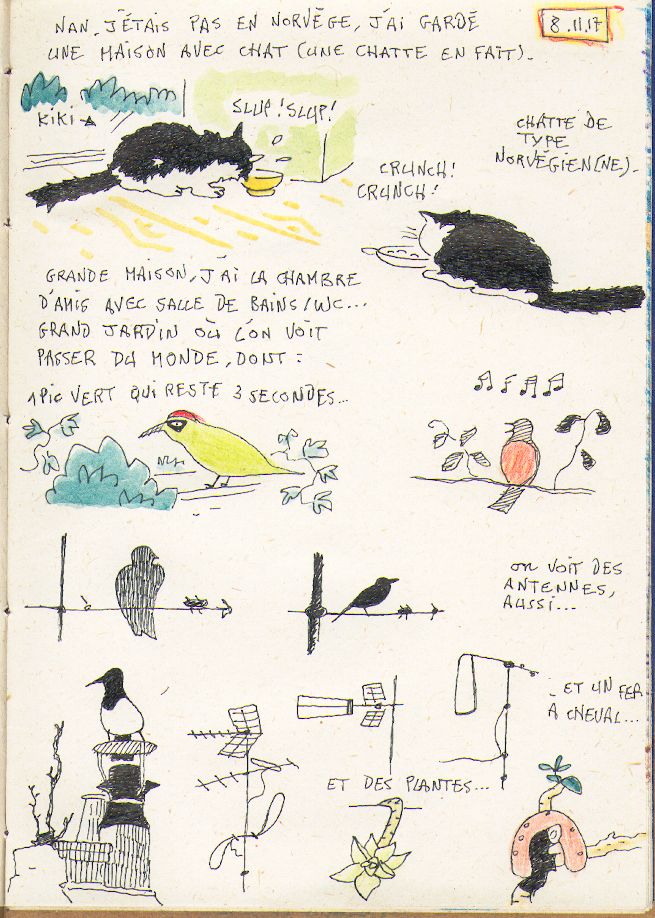 NAN, J'ÉTAIS PAS EN NORVÈGE, J'AI GARDÉ
UNE MAISON AVEC CHAT (UNE CHATTE EN FAIT).
8.11.17
KIKI
SLUP! SLUP!
CHATTE DE
TYPE
NORVÉGIEN(NE).
CRUNCH!
CRUNCH!
GRANDE MAISON, J'AI LA CHAMBRE
D'AMIS AVEC SALLE DE BAINS/WC...
GRAND JARDIN OÙ L'ON VOIT
PASSER DU MONDE, DONT :
1 PIC VERT QUI RESTE 3 SECONDES...
ON VOIT DES
ANTENNES,
AUSSI...
...ET UN FER
A CHEVAL...
ET DES PLANTES...